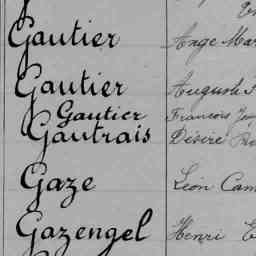 Gautier Ange
Gautier Auguste
Gautier François
Gautrais Désiré
Gaze Léon
Gazengel Henri